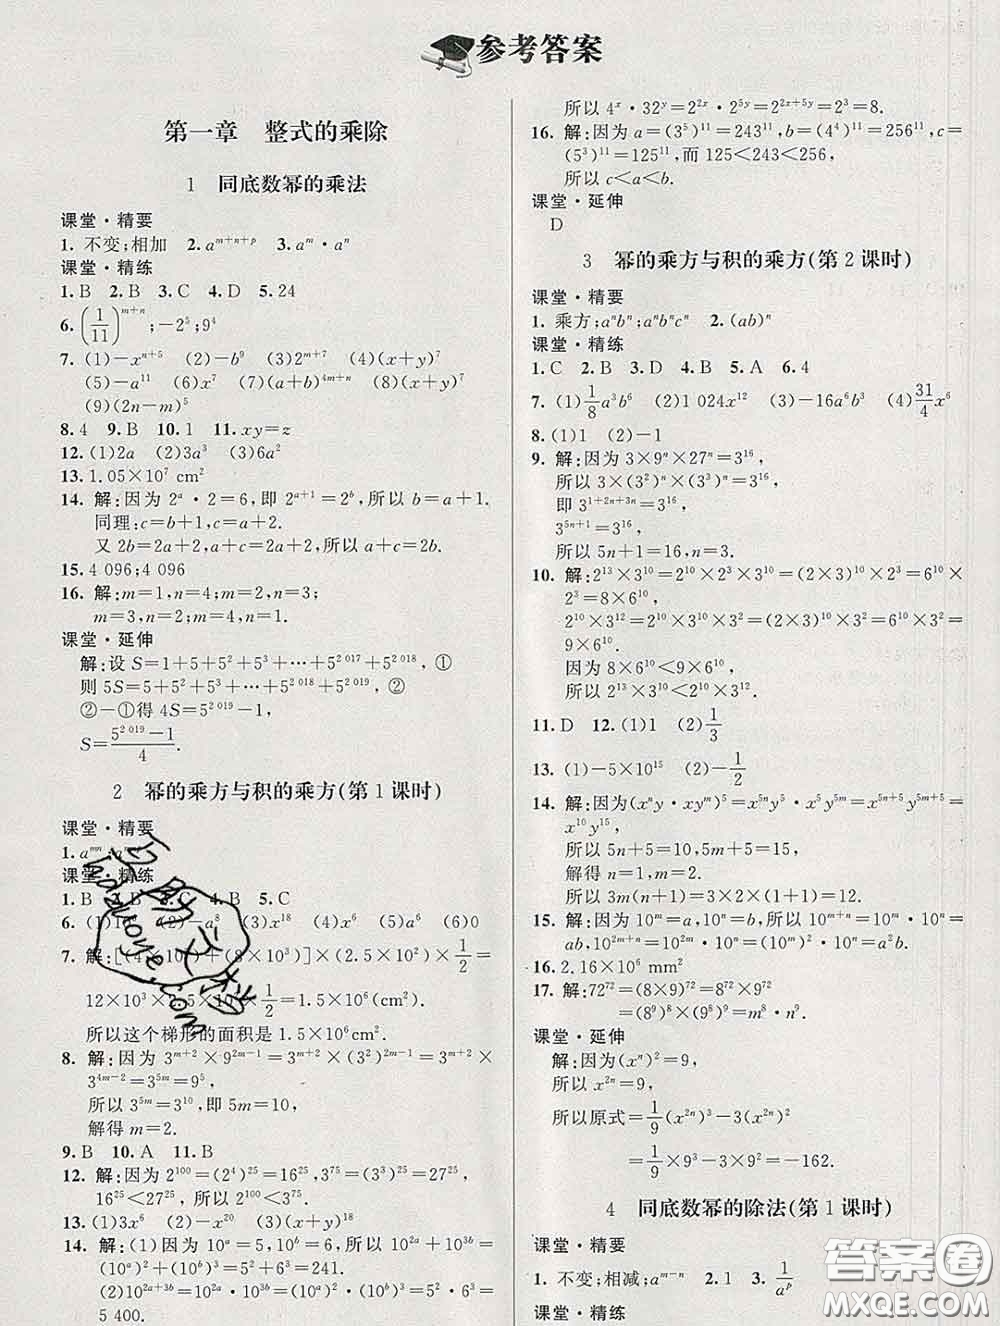 参考答案
第一章 整式的乘除
1 同底数幂的乘法
课堂·精要
1. 不变;相加 2. a^{m+n+p} 3. a^m·a^n
课堂·精练
1. B 2. B 3. C 4. D 5. 24
6. (1/11)^{m+n};-2^5;9^4
7. (1)-x^{n+5} (2)-b^9 (3)2^{m+7} (4)(x+y)^7
(5)-a^{11} (6)x^7 (7)(a+b)^{4m+n} (8)(x+y)^7
(9)(2n-m)^5
8. 4 9. B 10. 1 11. xy=z
12. (1)2a (2)3a^3 (3)6a^2
13. 1.05×10^7 cm^2
14. 解:因为 2^a·2=6,即 2^{a+1}=2^b,所以 b=a+1.
同理:c=b+1,c=a+2.
又 2b=2a+2,a+c=2a+2,所以 a+c=2b.
15. 4 096;4 096
16. 解:m=1,n=4;m=2,n=3;
m=3,n=2;m=4,n=1.
课堂·延伸
解:设 S=1+5+5^2+5^3+…+5^{2 017}+5^{2 018},①
则 5S=5+5^2+5^3+…+5^{2 018}+5^{2 019},②
②-①得 4S=5^{2 019}-1,
S=(5^{2 019}-1)/4.
2 幂的乘方与积的乘方(第 1 课时)
课堂·精要
1. a^{mn}
课堂·精练
1. B 3. C 4. B 5. C
6. -a^8 (3)x^{18} (4)x^6 (5)a^6 (6)0
7. 解:+(8×10^3)]×(2.5×10^2)×1/2=
12×10^3×2.5×10^2×1/2=1.5×10^6(cm^2).
所以这个梯形的面积是 1.5×10^6 cm^2.
8. 解:因为 3^{m+2}×9^{2m-1}=3^{m+2}×(3^2)^{2m-1}=3^{m+2}×
3^{4m-2}=3^{5m}=9^5,
所以 3^{5m}=3^{10},即 5m=10,
解得 m=2.
9. B 10. A 11. B
12. 解:因为 2^{100}=(2^4)^{25}=16^{25},3^{75}=(3^3)^{25}=27^{25},
16^{25}<27^{25},所以 2^{100}<3^{75}.
13. (1)3x^6 (2)-x^{20} (3)(x+y)^{18}
14. 解:(1)因为 10^a=5,10^b=6,所以 10^{2a}+10^{3b}=
(10^a)^2+(10^b)^3=5^2+6^3=241.
(2)10^{2a+3b}=10^{2a}×10^{3b}=(10^a)^2×(10^b)^3=5^2×6^3=
5 400.
所以 4^x·32^y=2^{2x}·2^{5y}=2^{2x+5y}=2^3=8.
16. 解:因为 a=(3^5)^{11}=243^{11},b=(4^4)^{11}=256^{11},c=
(5^3)^{11}=125^{11},而 125<243<256,
所以 c<a<b.
课堂·延伸
D
3 幂的乘方与积的乘方(第 2 课时)
课堂·精要
1. 乘方;a^nb^n;a^nb^nc^n 2. (ab)^n
课堂·精练
1. C 2. B 3. D 4. B 5. A 6. 4
7. (1)1/8 a^3b^6 (2)1 024x^{12} (3)-16a^6b^3 (4)31/4 x^6
8. (1)1 (2)-1
9. 解:因为 3×9^n×27^n=3^{16},
所以 3×(3^2)^n×(3^3)^n=3^{16},
即 3^{1+2n+3n}=3^{16},
3^{5n+1}=3^{16},
所以 5n+1=16,n=3.
10. 解:2^{13}×3^{10}=2^{10}×2^3×3^{10}=(2×3)^{10}×2^3=6^{10}×
2^3=8×6^{10},
2^{10}×3^{12}=2^{10}×3^{10}×3^2=(2×3)^{10}×3^2=6^{10}×3^2=
9×6^{10}.
因为 8×6^{10}<9×6^{10},
所以 2^{13}×3^{10}<2^{10}×3^{12}.
11. D 12. (1)1 (2)1/3
13. (1)-5×10^{15} (2)-1/2
14. 解:因为(x^ny·xy^m)^5=x^{5n}y^5·x^5y^{5m}=x^{5n+5}y^{5m+5}=
x^{10}y^{15},
所以 5n+5=10,5m+5=15,
解得 n=1,m=2.
所以 3m(n+1)=3×2×(1+1)=12.
15. 解:因为 10^m=a,10^n=b,所以 10^{m+n}=10^m·10^n=
ab,10^{2m+n}=10^{2m}·10^n=(10^m)^2·10^n=a^2b.
16. 2.16×10^6 mm^2
17. 解:72^{72}=(8×9)^{72}=8^{72}×9^{72}
=(8^9)^8×(9^8)^9=m^8·n^9.
课堂·延伸
解:因为(x^n)^2=9,
所以 x^{2n}=9,
所以原式=1/9(x^{2n})^3-3(x^{2n})^2
=1/9×9^3-3×9^2=-162.
4 同底数幂的除法(第 1 课时)
课堂·精要
1. 不变;相减;a^{m-n} 2. 1 3. 1/a^p
课堂·精练
答案圈
MXQE.COM